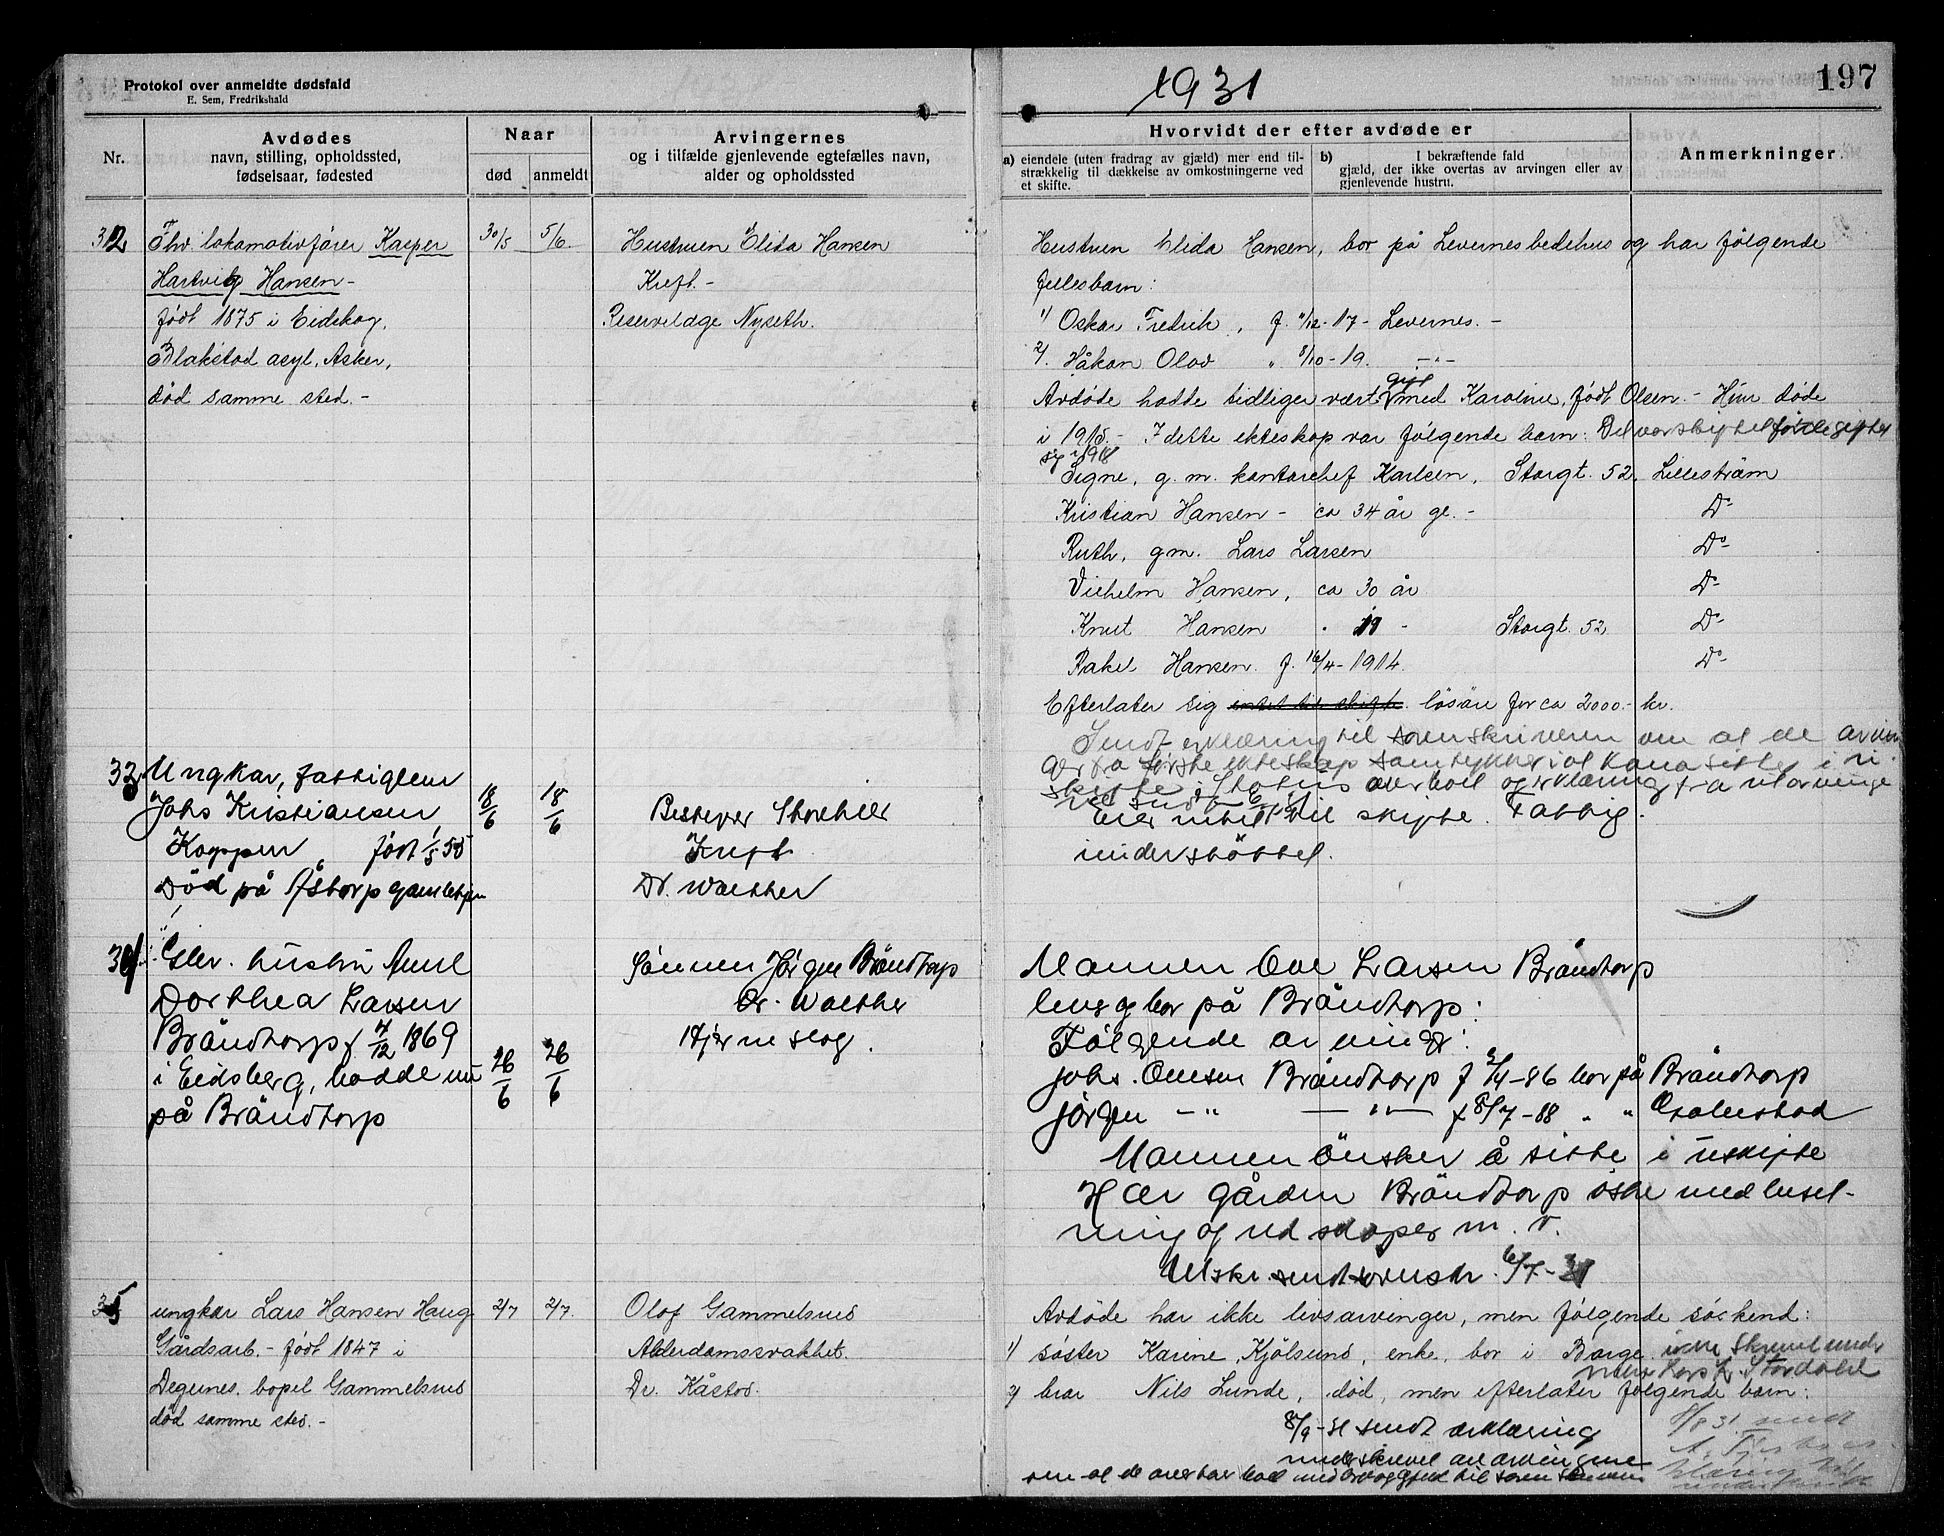 Protokol over anmeldte dødsfald
E. Sem, Fredrikshald
1931
197
Nr.
Avdødes
navn, stilling, opholdssted,
fødselsaar, fødested
Naar
død
anmeldt
Arvingernes
og i tilfælde gjenlevende egtefælles navn,
alder og opholdssted
Hvorvidt der efter avdøde er
a) eiendele (uten fradrag av gjæld) mer end til-
strækkelig til dækkelse av omkostningerne ved
et skifte.
b) I bekræftende fald
gjæld, der ikke overtas av arvingen eller av
gjenlevende hustru.
Anmerkninger
32
Fhv. lokomotivfører Kasper
Hartvig Hansen -
født 1875 i Eidskog,
Blakstad asyl, Asker,
død samme sted. -
30/5
5/6
Hustruen Elida Hansen
Kreft. -
Reservelæge Nyseth.
Hustruen Elida Hansen, bor på Levernes bedehus og har følgende
fellesbarn:
1) Oskar Fredrik, f. 11/12-17 - Levernes. -
2) Håkon Olav " 8/10-19. -"-
Avdøde hadde tidliger vært gift med Karoline, født Olsen. - Hun døde
i 1915. - I dette ekteskap var følgende barn: Det var skiftet før de giftet
sig i 1918
Signe, g. m. kontorchef Karlsen, Storgt. 52, Lillestrøm
Kristian Hansen - ca 34 år g. - Do
Ruth, gm. Lars Larsen Do
Vilhelm Hansen, ca 30 år Do
Knut Hansen " 19 - Storgt. 52 Do
Rakel Hansen f. 16/4-1914. Do
Efterlater sig intet til skifte løsøre for ca 2000.- kr.
Sendt erklæring til sorenskriveren om at de arvin
ger fra første ekteskap samtykker i at kona sitter i u
skifte
33
Ungkar, fattiglem
Johs Kristiansen
Koppen født 1/5 55
Død på Åstorp gamlehjem
18/6
18/6
Bestyrer Storelier
Kreft
Dr. Walther
Eier intet til skifte. Fattig
understøttet.
34
Gårdbr. hustru Anne
Dorthea Larsen
Brândtorp f 4/12 1869
i Eidsberg, bodde nu
på Brândtorp
26/6
26/6
Sønnen Jørgen Brândtorp
Dr. Walther
Hjerneslag.
Mannen Ole Larsen Brândtorp
lever og bor på Brândtorp:
Følgende arvinger:
Johs. Olsen Brândtorp f 2/4-86 bor på Brândtorp
Jørgen -"- -"- f 8/7-88 " "
Mannen ønsker å sitte i uskifte
H eier gården Brândtorp østre med beset-
ning og redskaper m. v.
Uskifte sendt sorenskr. 6/7-31
35
ungkar Lars Hansen Haug
Gårdsarb. - født 1847 i
Degernes, bopel Gammelsrud
død samme sted. -
2/7
2/7.
Olof Gammelsrud
Alderdomssvakhet.
Dr. Kåstad.
Avdøde har ikke livsarvinger, men følgende søskend:
1) søster Karine Kjølsund, enke, bor i Borge. ikke skrevet under
2) bror Nils Lunde, død, men efterlater følgende barn:
8/9-31 sendt erklæring
underskrevet av arvingene
om at de overtar boet med arv og gjeld til sorenskriveren
8/8 31 sendt